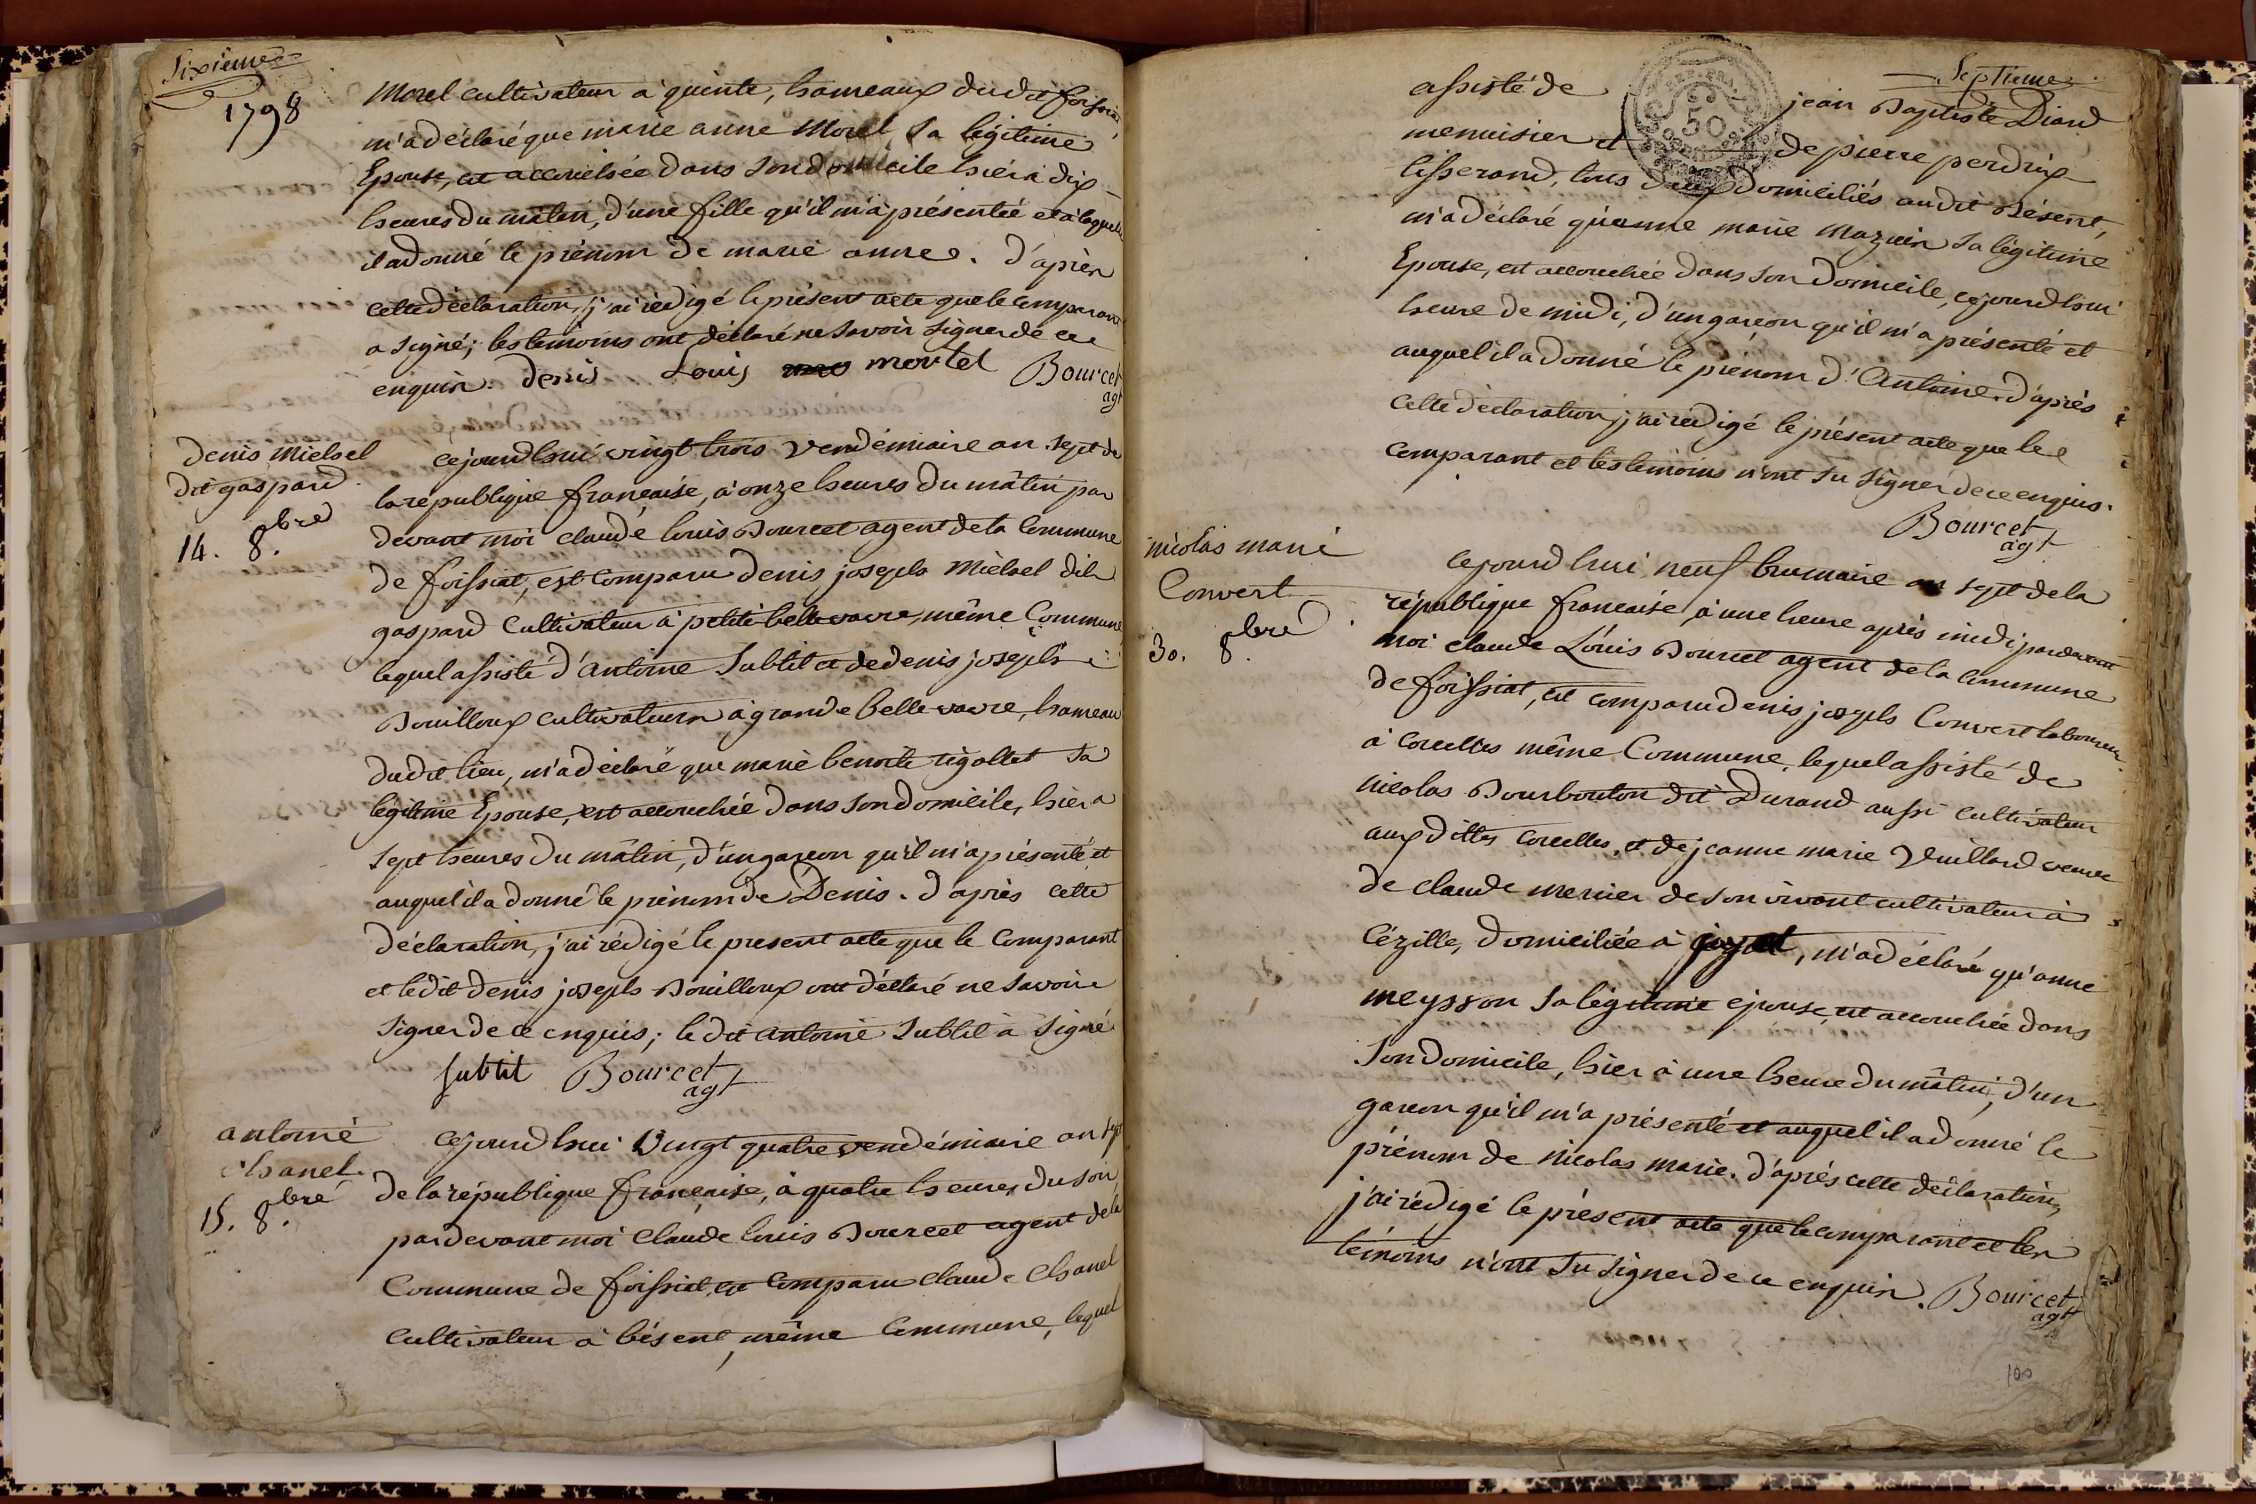 Sixieme
1798
Morel cultivateur a quinte, hameaux dudit foissiat,
m'a déclaré que marie anne Morel sa légitime
Epouse, est accouchée dans son domicile hier à dix
heures du matin, d'une fille qu'il m'a présentée et a laquelle
il a donné le prénom de marie anne. d'après
cette déclaration, j'ai rédigé le présent acte que le comparant
a signé; les temoins ont déclaré ne savoir signer de ce
enquis. denis Louis mortel Bourcet
agt
denis Michel
dit gaspard
14. 8bre
cejourdhui vingt trois vendémiaire an sept de
la république française, à onze heures du mâtin par
devant moi claude louis Bourcet agent de la Commune
de foissiat, est comparu denis joseph Michel dit
gaspard Cultivateur à petite belle vavre, même Commune
lequel assisté d'antoine Subtil et de denis joseph
Bouilloux cultivateurs à grande belle vavre, hameau
dudit lieu, m'a déclaré que marie benoite rigollet sa
légitime Epouse, est accouchée dans son domicile, hier a
sept heures du mâtin, d'un garçon qu'il m'a présenté et
auquel il a donné le prénom de Denis. d'après cette
déclaration, j'ai rédigé le present acte que le Comparant
et le dit denis joseph Bouilloux ont déclaré ne savoir
signer de ce enquis; le dit antoine Subtil à signé
subtil Bourcet
agt
antoine
Chanel
15. 8bre
cejourdhui vingt quatre vendémiaire an sept
de la république française, à quatre heures du soir
pardevant moi Claude louis Bourcet agent de la
Commune de foissiat, est comparu claude Chanel
cultivateur à bésent, même Commune, lequel
Septieme
assisté de jean Baptiste Diard
menuisier et de pierre perdrix
tisserand, tous deux domiciliés audit Bésent,
m'a déclaré qu'anne marie mazuir sa légitime
Epouse, est accouchée dans son domicile, cejourdhui
heure de midi, d'un garçon qu'il m'a présenté et
auquel il a donné le prénom d'Antoine. d'après
cette déclaration, j'ai rédigé le présent acte que le
comparant et les temoins n'ont su signer de ce enquis.
Bourcet
agt
nicolas marie
Convert
30. 8bre
cejourdhui neuf brumaire an sept de la
république française, à une heure après midi pardevant
moi claude Louis Bourcet agent de la commune
de foissiat, est comparu denis joseph Convert laboureur
à Corcelles même Commune, lequel assisté de
nicolas Bourbouton dit Durand aussi cultivateur
aux dittes Corcelles, et de jeanne marie Vuillard veuve
de claude mercier de son vivant cultivateur à
Cézille, domiciliée à jayat, m'a déclaré qu'anne
meysson sa légitime epouse, est accouchée dans
son domicile, hier à une heure du mâtin, d'un
garçon qu'il m'a présenté et auquel il a donné le
prénom de nicolas marie. d'après cette déclaration,
j'ai rédigé le présent acte que le comparant et les
témoins n'ont su signer de ce enquis. Bourcet
agt
100